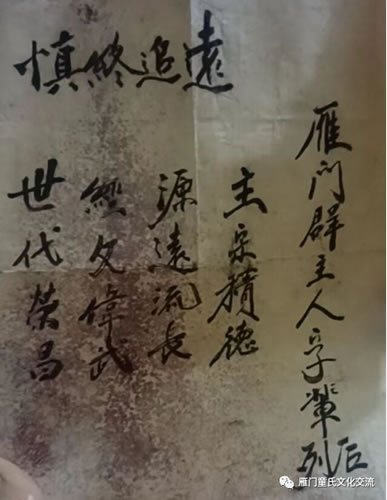 慎終追遠
雁门辟主人字輩列后
主宗積德
源遠流長
經文偉武
世代荣昌
雁门童氏文化交流